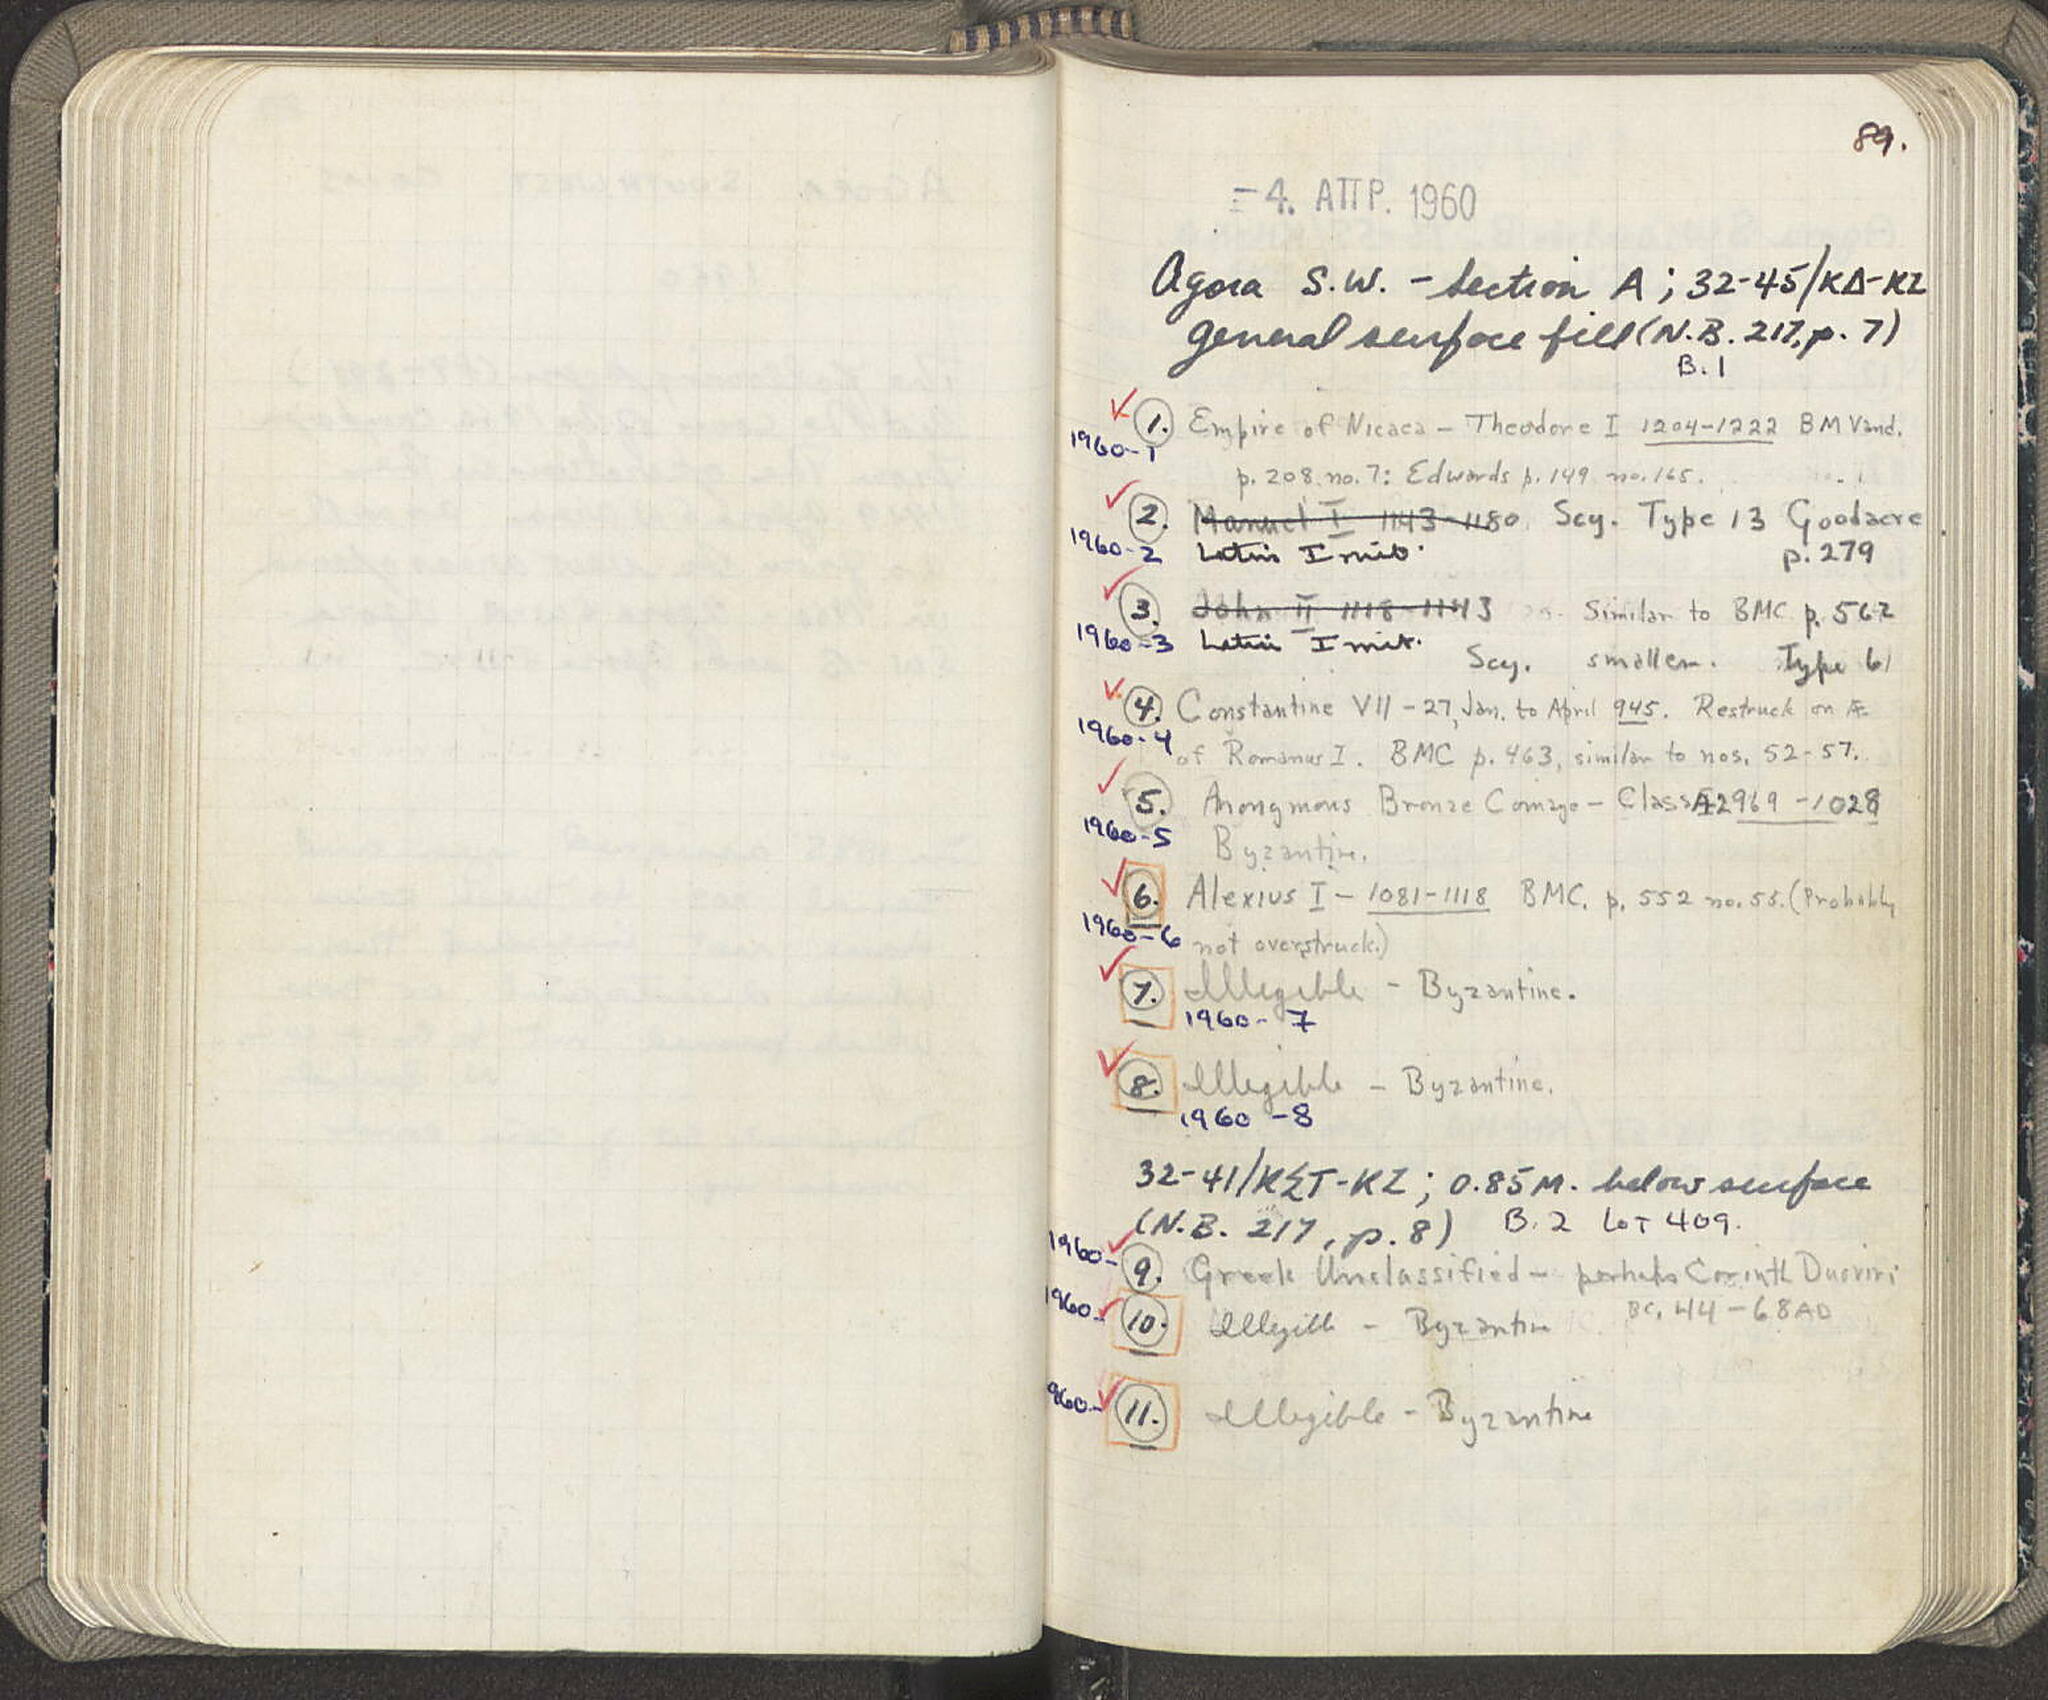 89.
-4. ΑΠΡ. 1960
Agora S.W. - Section A; 32-45/ΚΔ-ΚΖ
general surface fill (N.B. 217, p. 7)
B.1
1. Empire of Nicaea - Theodore I 1204-1222 BM Vand.
1960-1
p. 208. no. 7: Edwards p. 149 no. 165.
2. Manuel I 1143-1180 Scy. Type 13 Goodacre
1960-2 Latin Imit. p. 279
3. John II 1118-1143 Similar to BMC p. 562
1960-3 Latin Imit. Scy. smaller. Type 61
4. Constantine VII - 27, Jan. to April 945. Restruck on Æ
1960-4 of Romanus I. BMC p. 463, similar to nos. 52-57.
5. Anonymous Bronze Coinage - Class A2 969-1028
1960-5 Byzantine.
6. Alexius I - 1081-1118 BMC. p. 552 no. 55. (Probably
1960-6 not overstruck.)
7. Illegible - Byzantine.
1960-7
8. Illegible - Byzantine.
1960-8
32-41/ΚΣΤ-ΚΖ; 0.85 M. below surface
(N.B. 217, p. 8) B.2 Lot 409.
1960- 9. Greek Unclassified - perhaps Corinth Duoviri
BC. 44-68 AD
1960- 10. Illegible - Byzantine
960- 11. Illegible - Byzantine